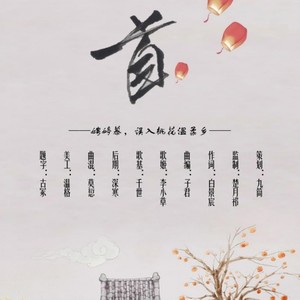 首
误入桃花温柔乡
策划：九简
监制：楚月祁
作词：白景宸
曲编：子君
歌姬：李小草
歌基：千世
后期：深寒
曲混：莫忌
美工：温格
题字：古冢